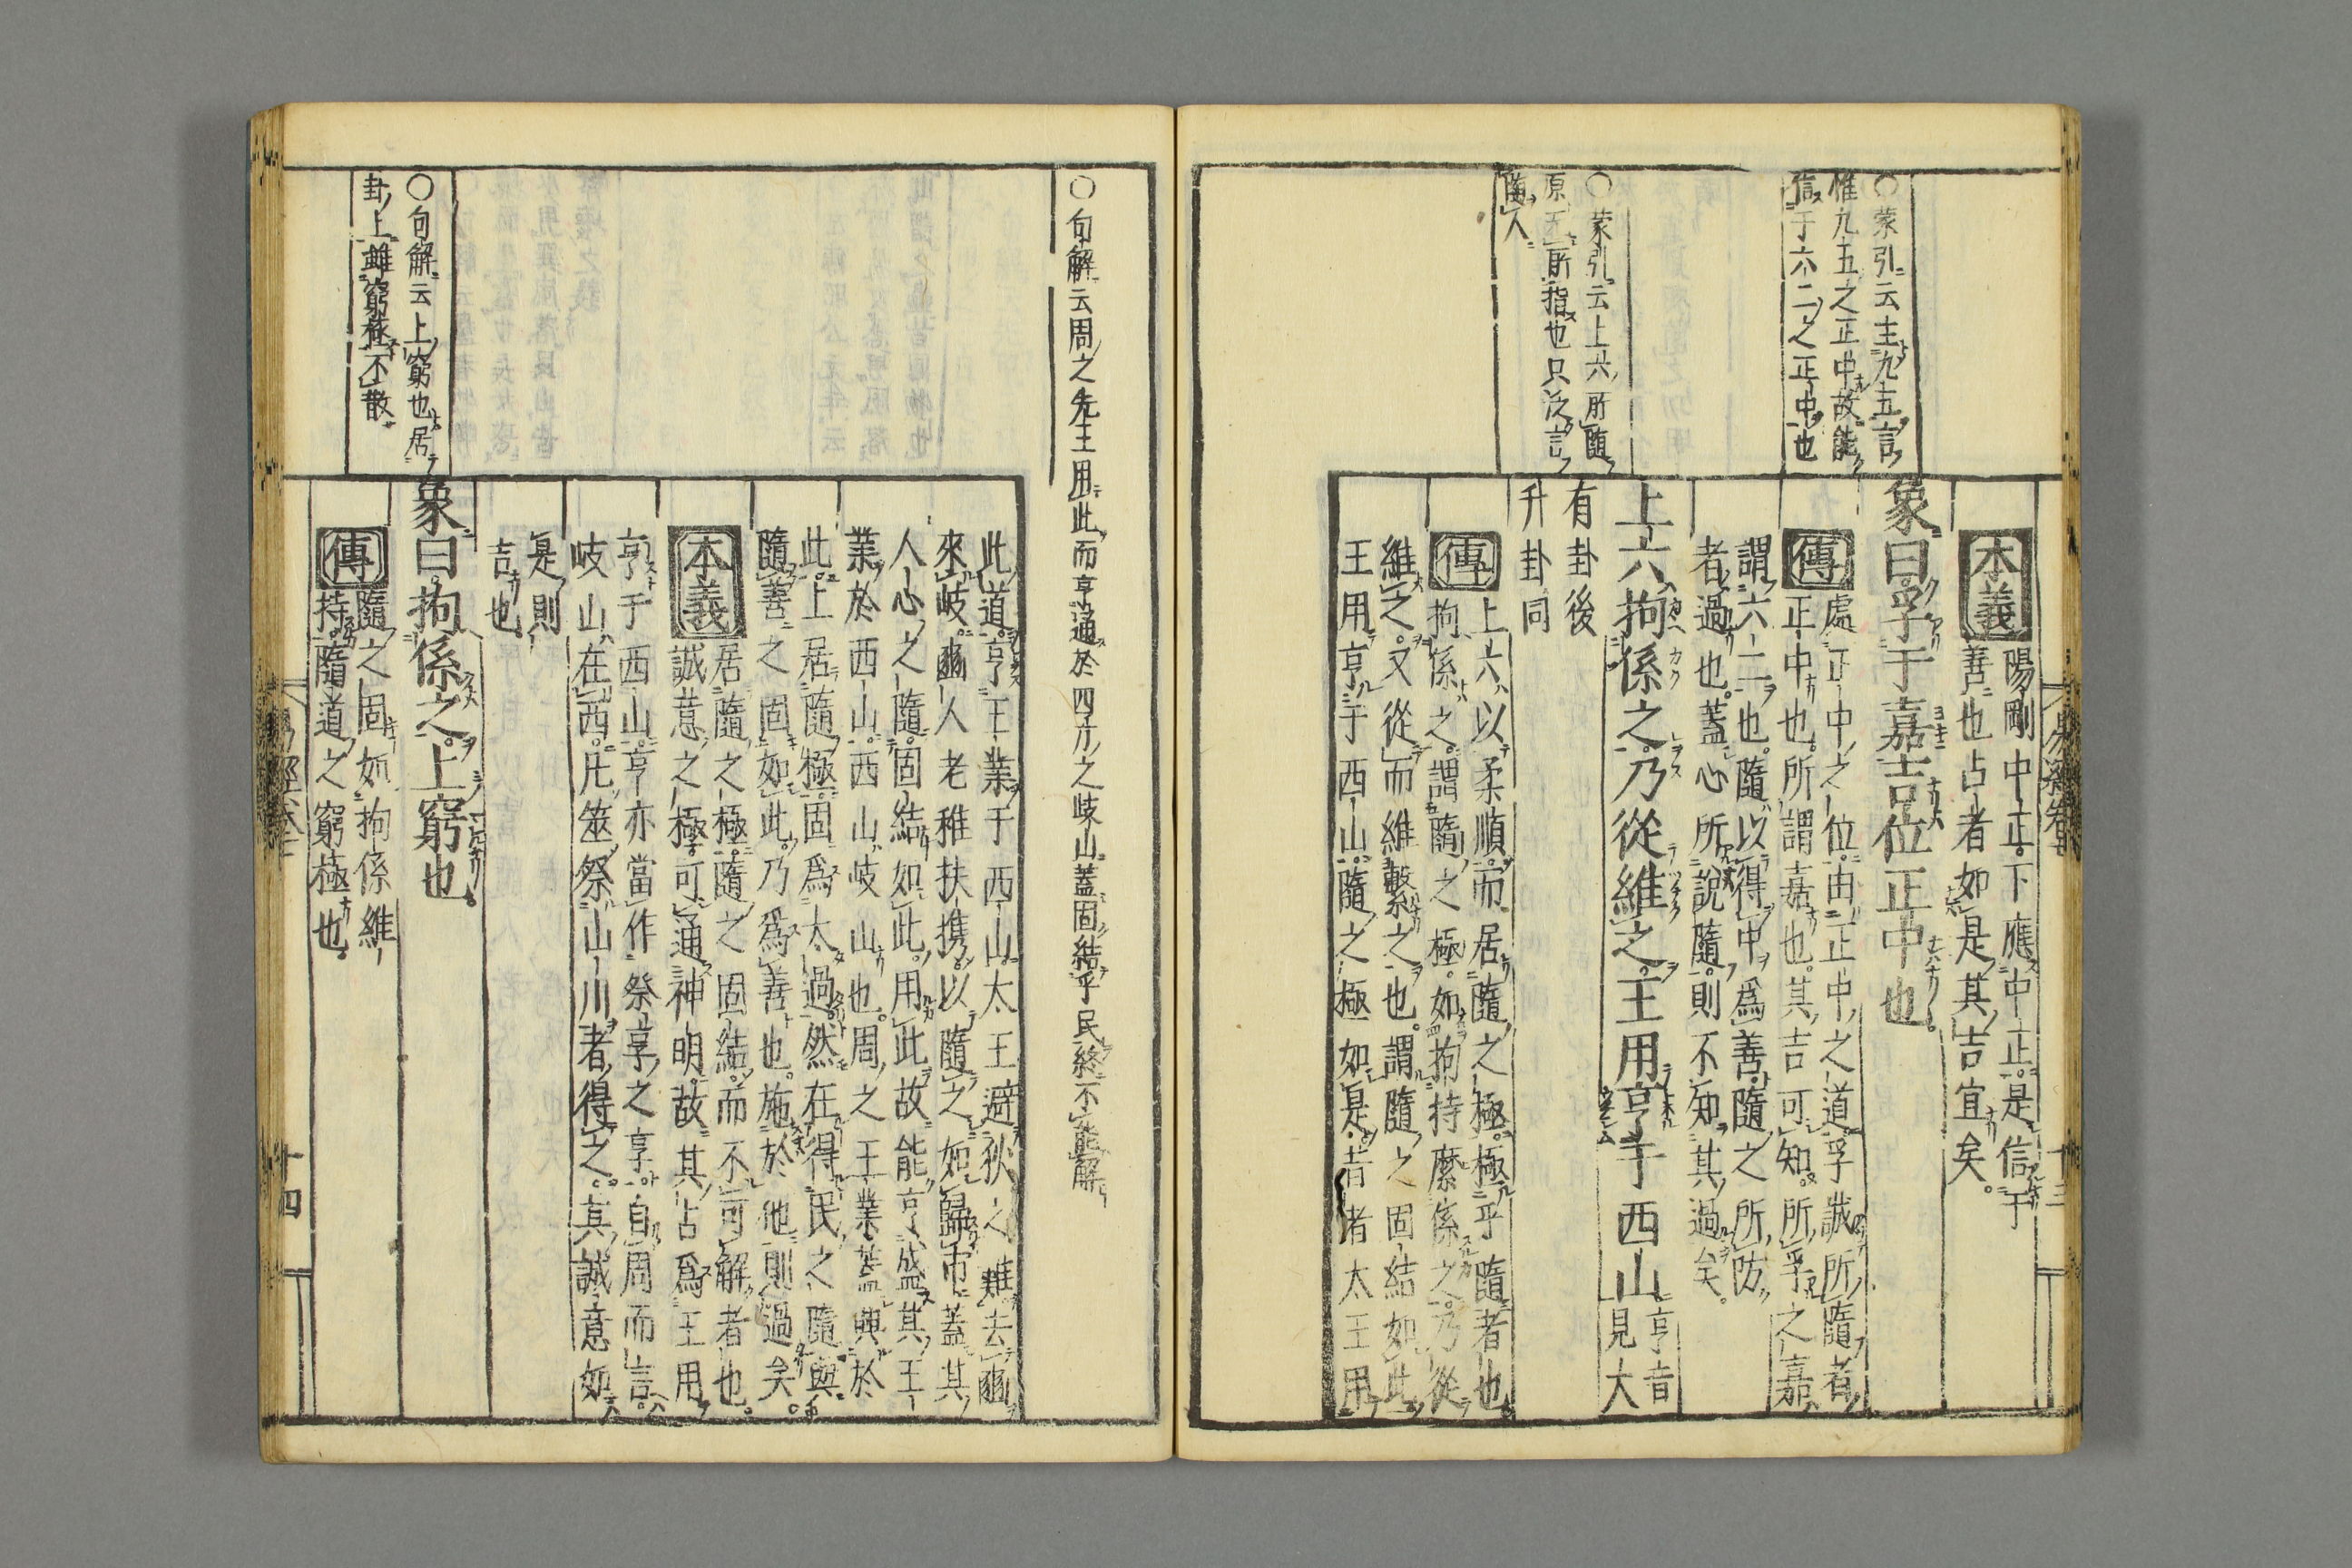 本義
陽剛中正下應中正是信于
善也占者如是其吉宜矣
象曰孚于嘉吉位正中也
傳
處正中之位由正中之道孚誠所隨者
正中也所謂嘉也其吉可知所孚之嘉
謂六二也隨以得中爲善隨之所防
者過也蓋心所說隨則不知其過矣
上六拘係之乃從維之王用亨于西山
亨音
見大
有卦後
升卦同
傳
上六以柔順而居隨之極極乎隨者也
拘係之謂隨之極如拘持縻係之乃從
維之又從而維繫之也謂隨之固結如此
王用亨于西山隨之極如是昔者太王用
○蒙引云主九五言
惟九五之正中故能
信于六二之正中也
○蒙引云上六所隨
原无所指也只泛言
隨人
此道亨王業于西山太王避狄之難去豳
來岐豳人老稚扶携以隨之如歸市蓋其
人心之隨固結如此用此故能亨盛其王
業於西山西山岐山也周之王業蓋興於
此上居隨極固爲太過然在得民之隨與
隨善之固如此乃爲善也施於他則過矣
本義
居隨之極隨之固結而不可解者也
誠意之極可通神明故其占爲王用
亨于西山亨亦當作祭享之享自周而言
岐山在西凡筮祭山川者得之其誠意如
是則
吉也
象曰拘係之上窮也
傳
隨之固如拘係維
持隨道之窮極也
○句解云周之先王用此而亨通於四方之岐山蓋固結乎民終不能解
○句解云上窮也居
卦上雖窮極不散
十四